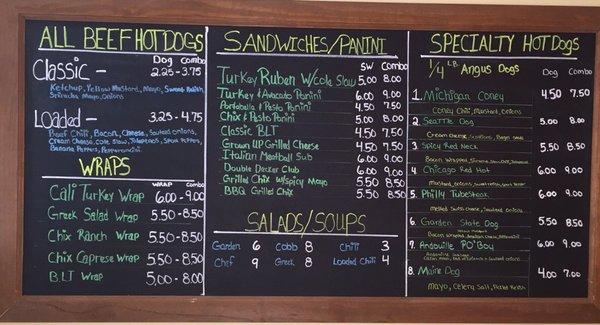 ALL BEEF HOT DOGS
Dog Combo
Classic - 2.25-3.75
Ketchup, Yellow Mustard, Mayo, Sweet Relish,
Sriracha Mayo, Onions
Loaded - 3.25-4.75
Beef Chili, Bacon, Cheese, Sauteed Onions,
Cream Cheese, Cole Slaw, Jalapenos, Sport Peppers,
Banana Peppers, Pepperoncini
WRAPS
WRAP Combo
Cali Turkey Wrap 6.00-9.00
Greek Salad Wrap 5.50-8.50
Chix Ranch Wrap 5.50-8.50
Chix Caprese Wrap 5.50-8.50
BLT Wrap 5.00-8.00
SANDWICHES/PANINI
SW Combo
Turkey Ruben W/cole Slaw 5.00 8.00
Turkey & Avocado Panini 6.00 9.00
Portobello & Pesto Panini 4.50 7.50
Chix & Pesto Panini 5.00 8.00
Classic BLT 4.50 7.50
Grown UP Grilled Cheese 4.50 7.50
Italian Meatball Sub 6.00 9.00
Double Decker Club 6.00 9.00
Grilled Chix w/Spicy Mayo 5.50 8.50
BBQ Grilled Chix 5.50 8.50
SALADS/SOUPS
Garden 6 Cobb 8 Chili 3
Chef 9 Greek 8 Loaded Chili 4
SPECIALTY HOT DOGS
1/4 LB. Angus Dogs Dog Combo
1. Michigan Coney 4.50 7.50
Coney Chili, Mustard, Onions
2. Seattle Dog 5.00 8.00
Cream Cheese, Scallions,
3 Spicy Red Neck 5.50 8.50
Bacon Wrapped,
4 Chicago Red Hot 6.00 9.00
5. Philly Tubesteak 6.00 9.00
6 Garden State Dog 5.50 8.50
7. Andouille PO'Boy 6.00 9.00
8. Maine Dog 4.00 7.00
Mayo, Celery Salt,